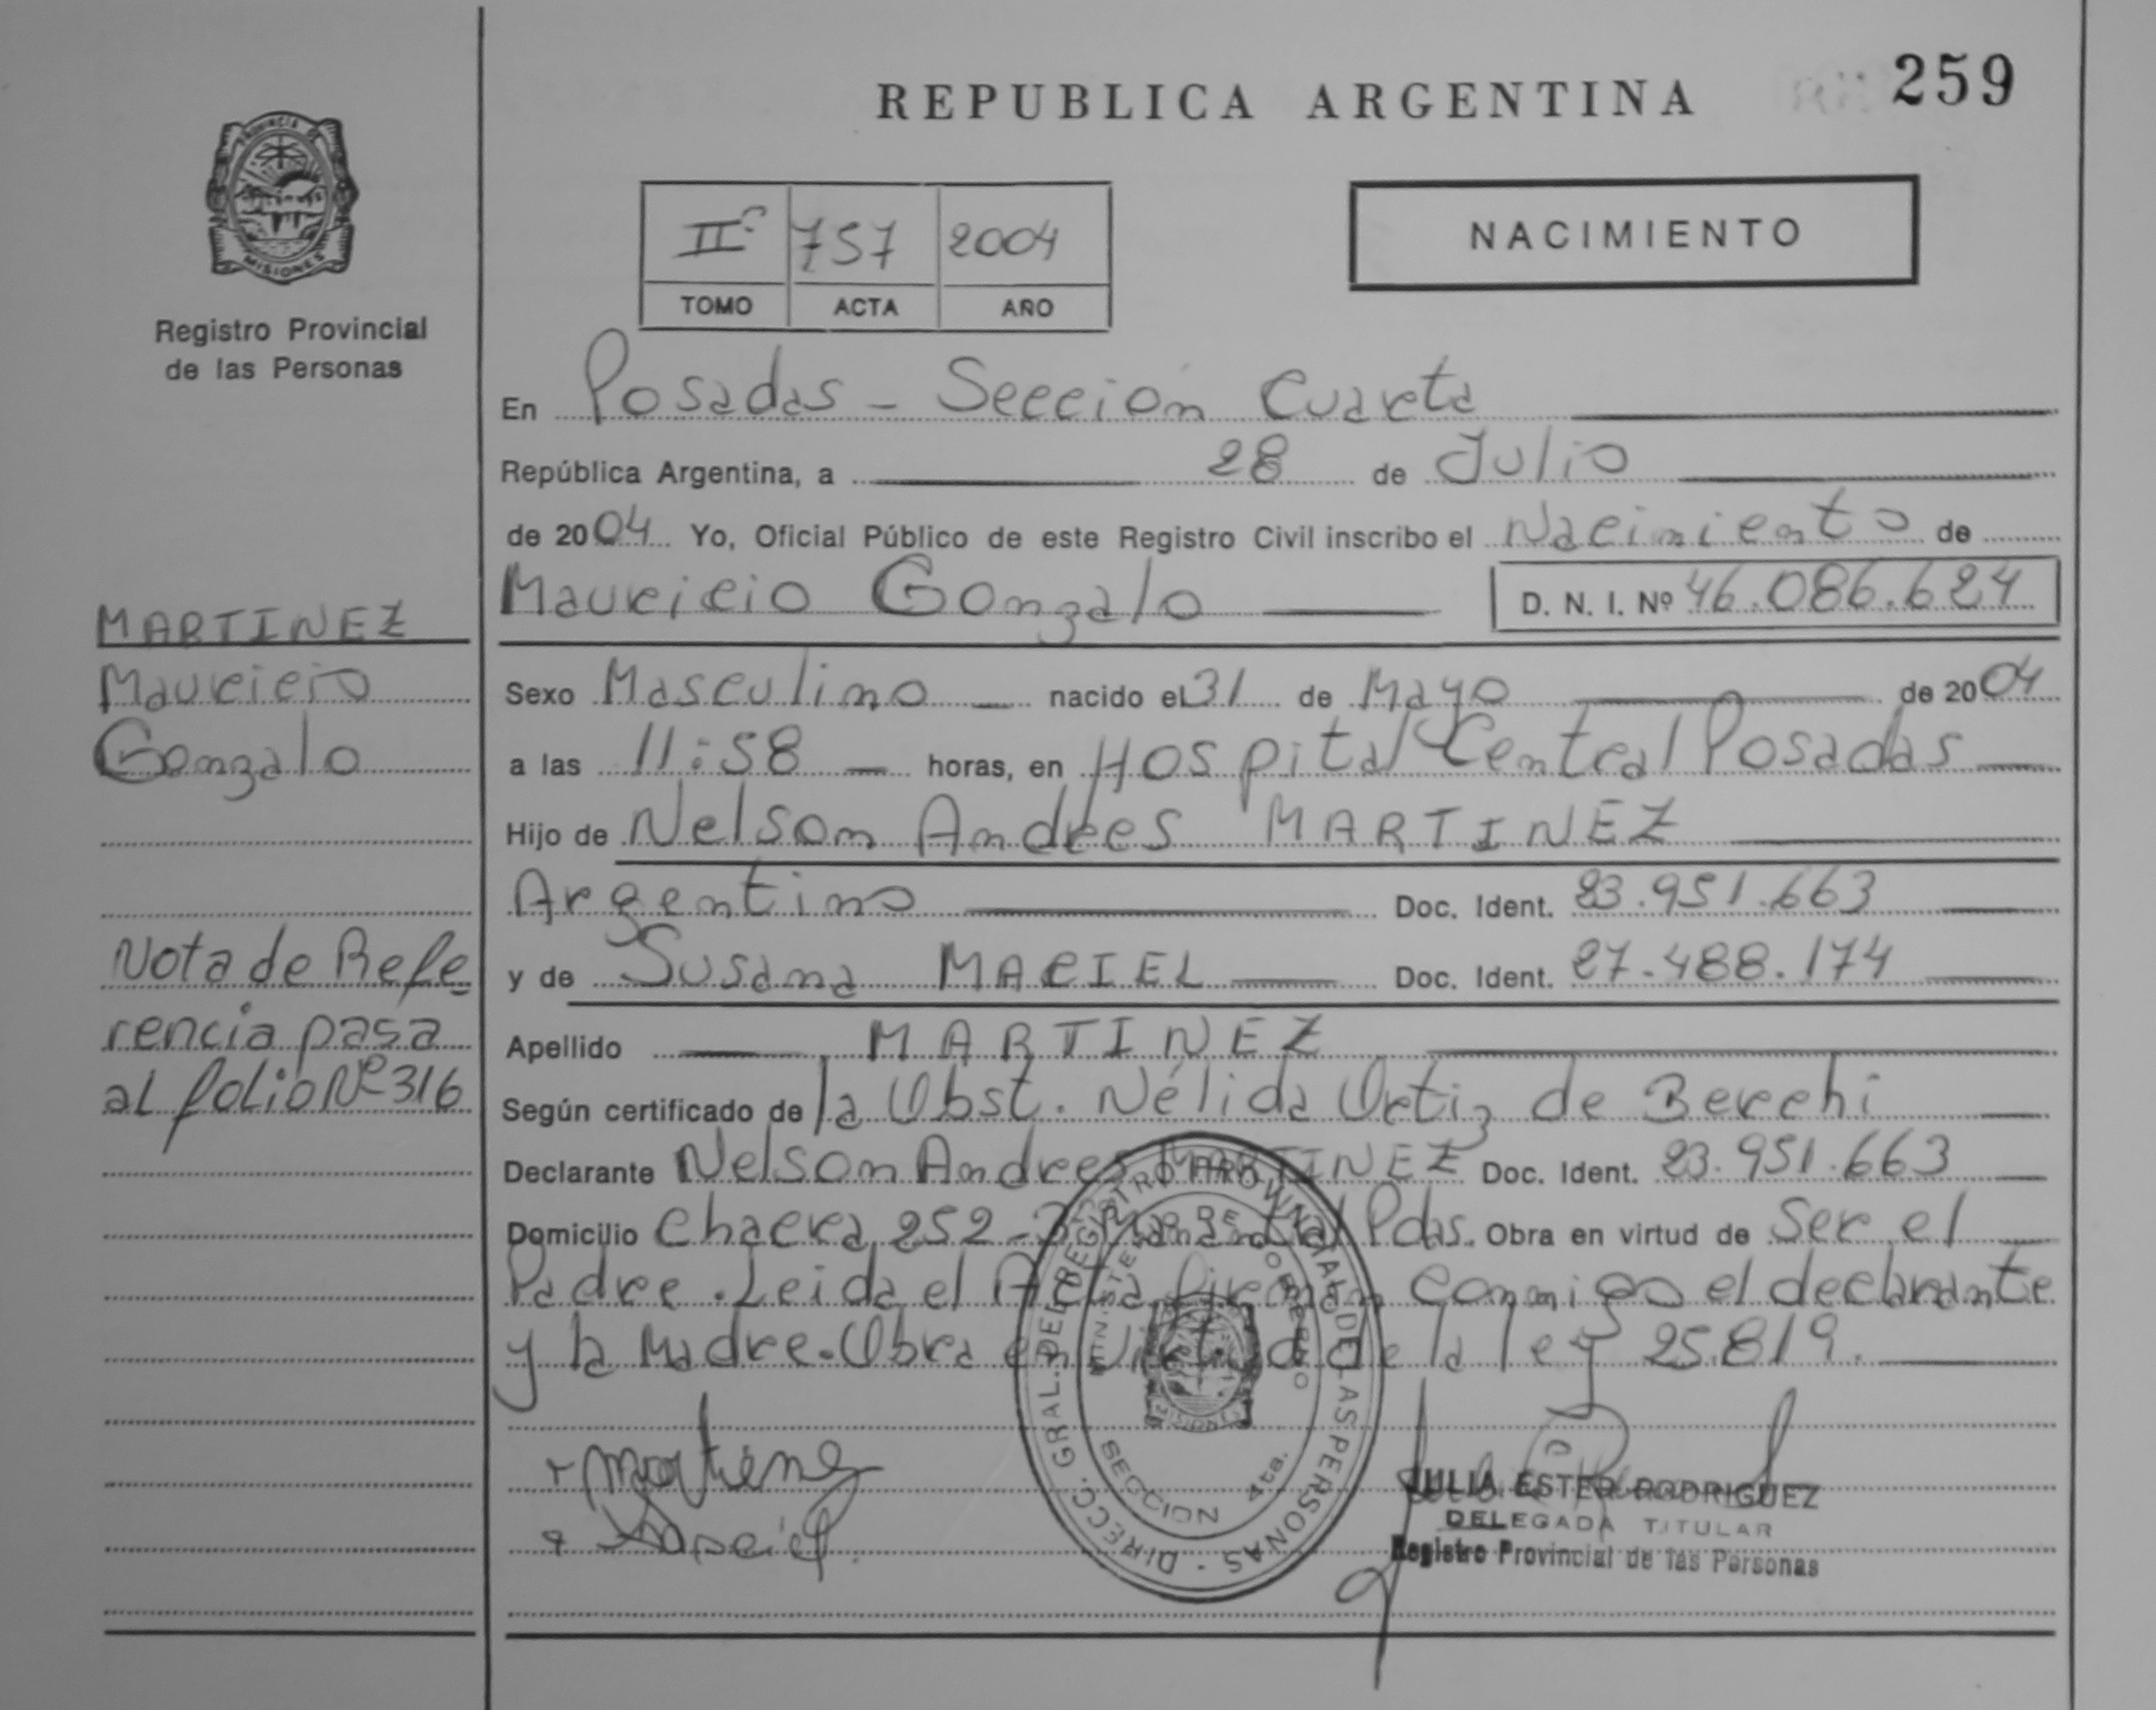 REPUBLICA ARGENTINA
259
PROVINCIA DE
MISIONES
Registro Provincial
de las Personas
NACIMIENTO
IIº 757 2004
TOMO ACTA AÑO
En Posadas - Sección Cuarta
República Argentina, a 28 de Julio
de 2004 Yo, Oficial Público de este Registro Civil inscribo el Nacimiento de
Mauricio Gonzalo D. N. I. Nº 46.086.624
MARTINEZ
Mauricio
Gonzalo
Nota de Refe
rencia pasa
al folio Nº 316
Sexo Masculino nacido el 31 de Mayo de 2004
a las 11:58 horas, en Hospital Central Posadas
Hijo de Nelson Andres MARTINEZ
Argentino Doc. Ident. 23.951.663
y de Susana MACIEL Doc. Ident. 27.488.174
Apellido MARTINEZ
Según certificado de la Obst. Nélida Ortiz de Berchi
Declarante Nelson Andres MARTINEZ Doc. Ident. 23.951.663
Domicilio Chacra 252-B° Manantial Pdas. Obra en virtud de Ser el
Padre. Leida el Acta firman conmigo el declarante
y la Madre. Obra en virtud de la ley 25.819.
Martinez
Maciel
DIRECC. GRAL. DEL REGISTRO PROVINCIAL DE LAS PERSONAS
MINISTERIO DE GOBIERNO
SECCION 4ta.
MISIONES
JULIA ESTER RODRIGUEZ
DELEGADA TITULAR
Registro Provincial de las Personas